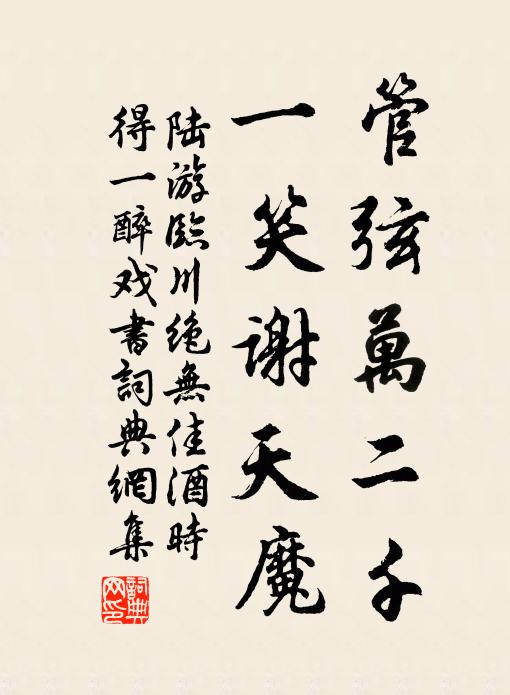 管弦萬二千
一笑謝天魔
陆游臨川绝無佳酒時
得一醉戏書詞典網集
詞典网印